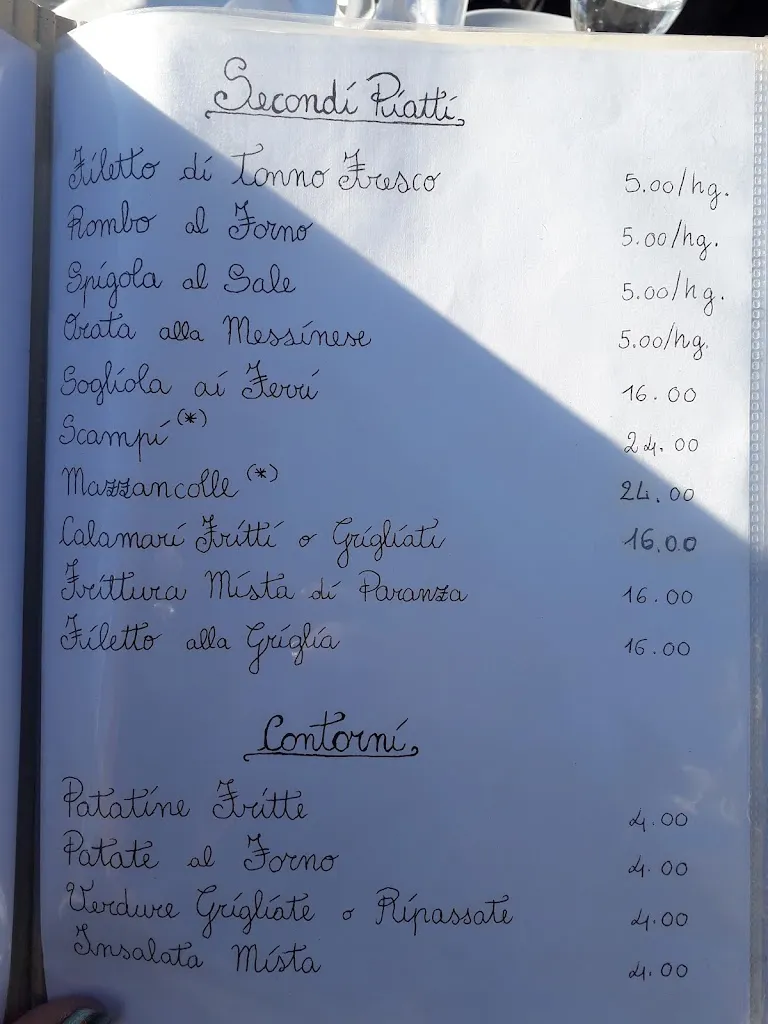 Secondi Piatti
Filetto di Tonno Fresco 5.00/hg.
Rombo al Forno 5.00/hg.
Spigola al Sale 5.00/hg.
Orata alla Messinese 5.00/hg.
Sogliola ai Ferri 16.00
Scampi (*) 24.00
Mazzancolle (*) 24.00
Calamari Fritti o Grigliati 16.00
Frittura Mista di Paranza 16.00
Filetto alla Griglia 16.00
Contorni
Patatine Fritte 4.00
Patate al Forno 4.00
Verdure Grigliate o Ripassate 4.00
Insalata Mista 4.00